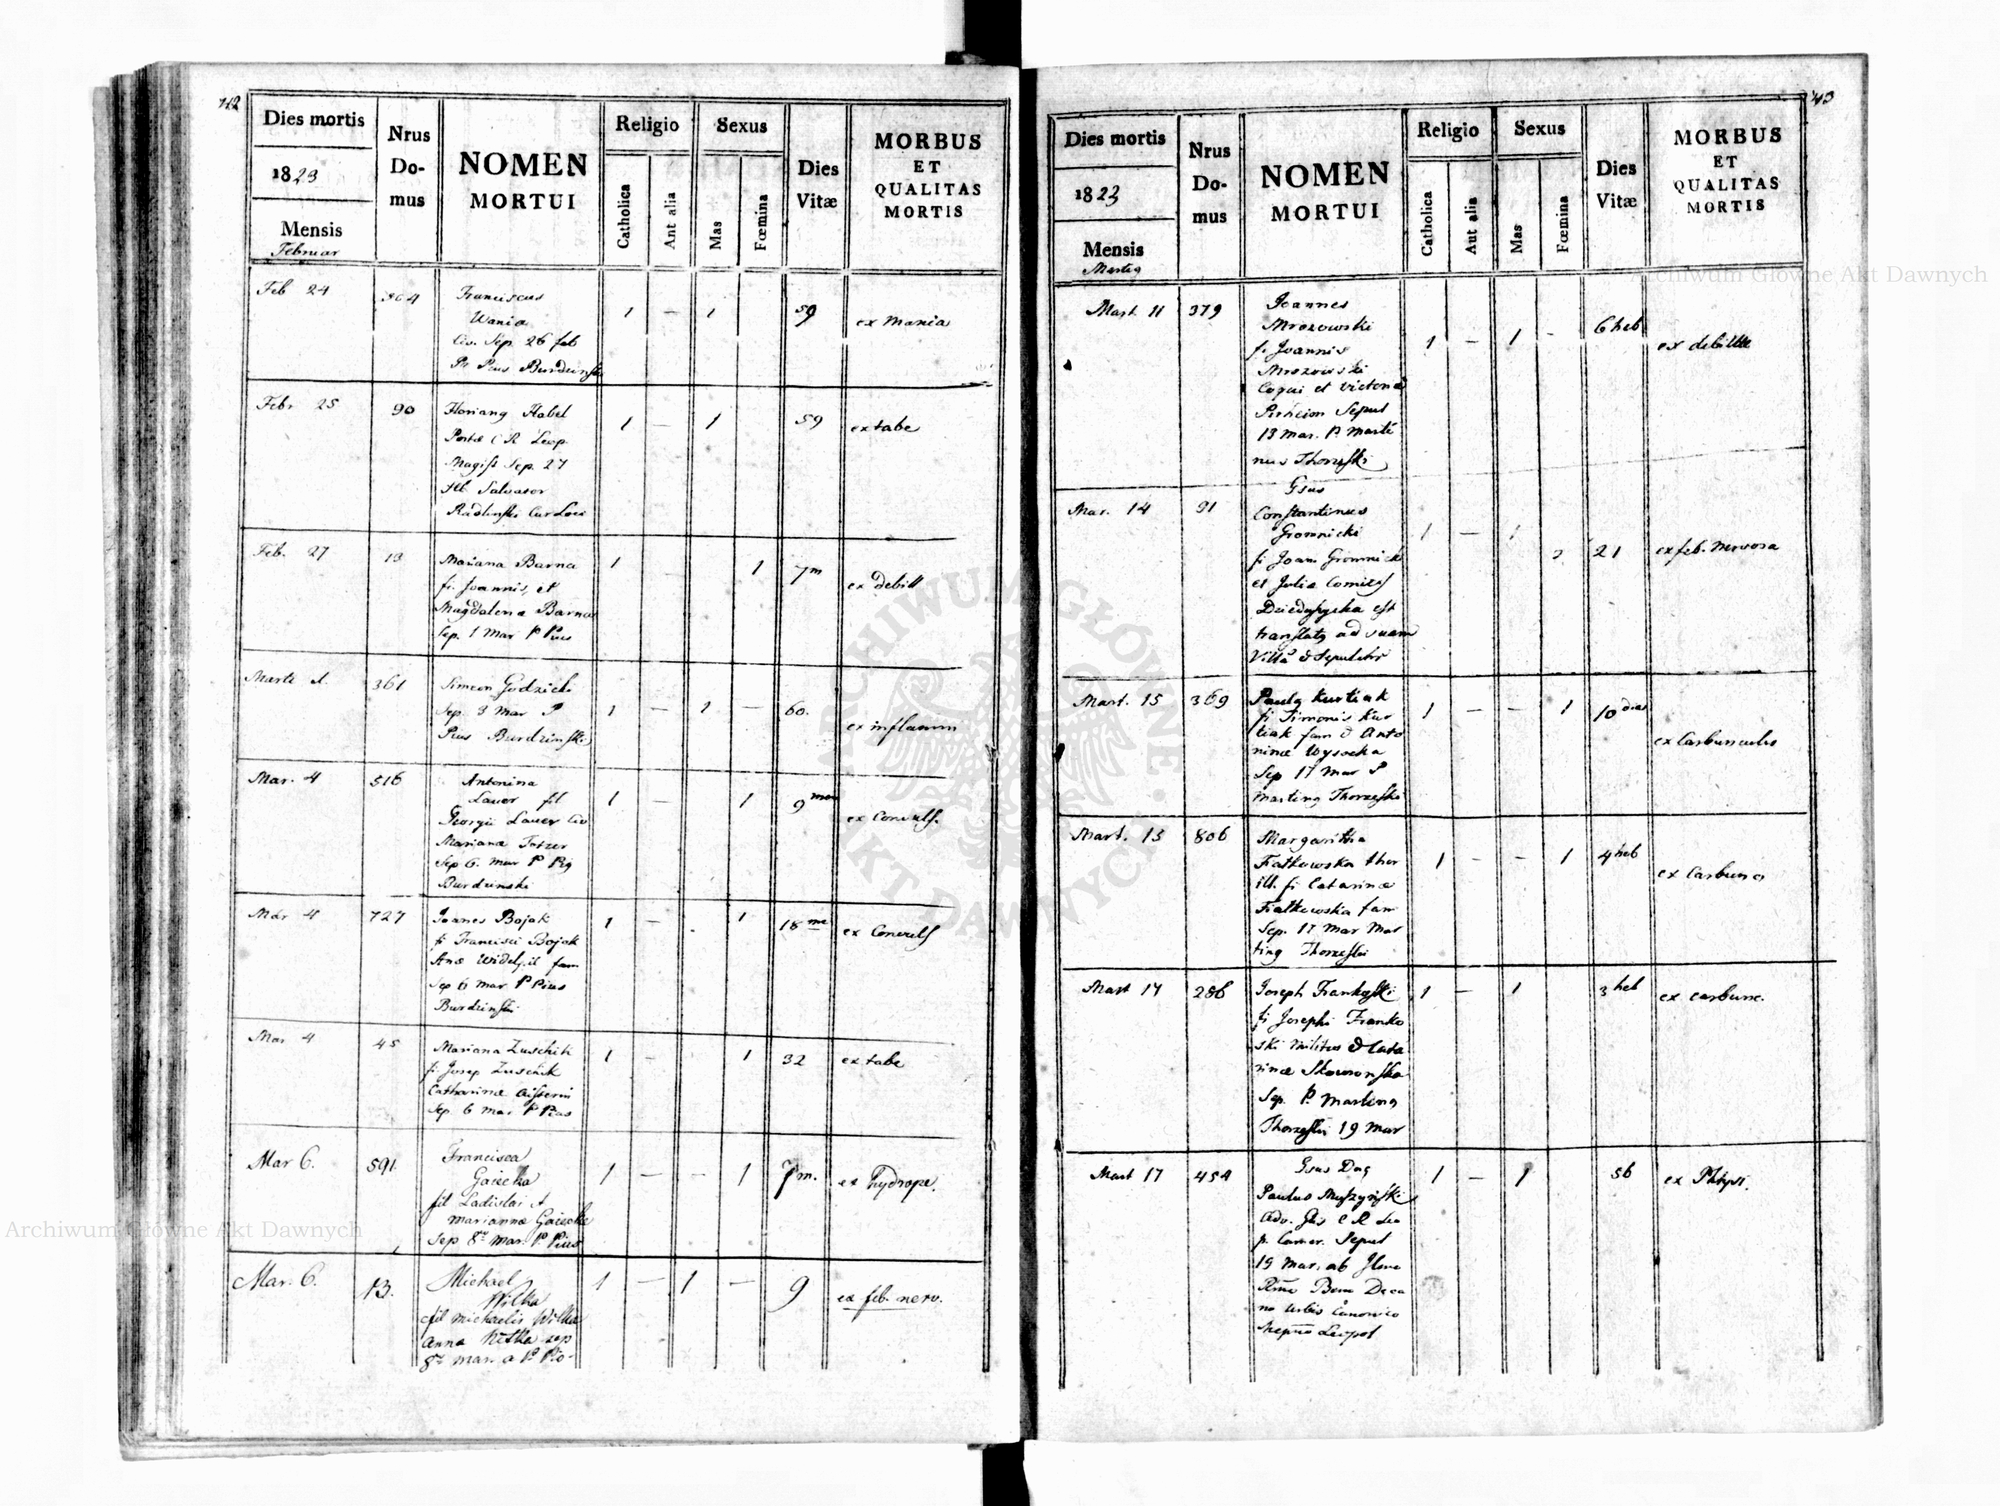 42
Dies mortis
1823
Mensis
Februar
Nrus
Do-
mus
NOMEN
MORTUI
Religio
Catholica
Aut alia
Sexus
Mas
Fœmina
Dies
Vitæ
MORBUS
ET
QUALITAS
MORTIS
Feb 24
Franciscus
Wania
Civ. Sep. 26 feb
Pr Pius Burdzinski
1 — 1
59
ex Mania
Febr 25
90
Floriany Habel
C R Leop
Magist Sep. 27
Salvator
Radlinski Cur Loci
1 — 1
59
ex tabe
Feb. 27
13
Mariana Barna
fi Joannis, et
Magdalena Barna
Sep. 1 Mar P Pius
1 1
7m
ex debilit
Martii
361
Simeon Godzicki
Sep. 3 Mar P
Pius Burdzinski
1 — 1 —
60.
ex inflamm
Mar. 4
516
Antonina
Lauer fil
Georgii Lauer Civ
Mariana
Sep 6. Mar P Pig
Burdzinski
1 — 1
9 men
ex Convuls.
Mar 4
727
Joanes Bojak
fi Francisci Bojak
fam
Sep 6 Mar. P Pius
Burdzinski
1 — 1
18 me
ex Convuls
Mar 4
45
Mariana Zuschik
fi Josep Zuschik
Catharinæ
Sep. 6 Mar P Pius
1 — 1
32
ex tabe
Mar 6.
591.
Francisca
Gaiecka
fil Ladislai et
Mariannæ Gaiecka
Sep 8va Mar. P. Pius
1 — — 1
7m.
ex hydrope.
Mar. 6.
13.
Michael
Wilka
fil Michaelis Wilka
Anna sep
8va Mar. a P. Pio
1 — 1 —
9
ex feb. nerv.
43
Dies mortis
1823
Mensis
Martiq
Nrus
Do-
mus
NOMEN
MORTUI
Religio
Catholica
Aut alia
Sexus
Mas
Fœmina
Dies
Vitæ
MORBUS
ET
QUALITAS
MORTIS
Mart. 11
379
Joannes
Mrozowski
fi Joannis
Mrozowski
Coqui et Victoria
Sepul
13 Mar. P. Marti
nus Thorzeski
1 — 1 —
6 heb
ex debilit
Mar. 14
91
Gsus
Constantinus
Gromnicki
fi Joan Gromnick
et Julia Comiess
Dzieduszycka est
translatq ad suam
Villā & Sepultus
1 — 1
21
ex feb. nervosa
Mart. 15
369
Paulq Kurtiak
fi Simonis Kur
tiak fam & Anto
ninæ Wysocka
Sep 17 Mar P
Marting Thorzeski
1 — — 1
10 dies
ex Carbunculo
Mart. 15
806
Margaritha
Fiałkowska thor
ill. fi Catarinæ
Fiałkowska fam
Sep. 17 Mar Mar
ting Thorzeski
1 — — 1
4 heb
ex Carbunc
Mart 17
286
Joseph Frankoski
fi Josephi Franko
ski militis & Cata
rinæ Skowronska
Sep. P. Marting
Thorzeski 19 Mar
1 — 1
3 heb
ex carbunc.
Mart 17
454
Gsus Dnq
Paulus Muszyński
Adv. C R Leo
p. Camer. Sepult
19 Mar. ab
Deca
no Urbis Canonico
Leopol
1 — 1
56
ex Phtysi.
Archiwum Główne Akt Dawnych
Archiwum Główne Akt Dawnych
ARCHIWUM GŁÓWNE AKT DAWNYCH